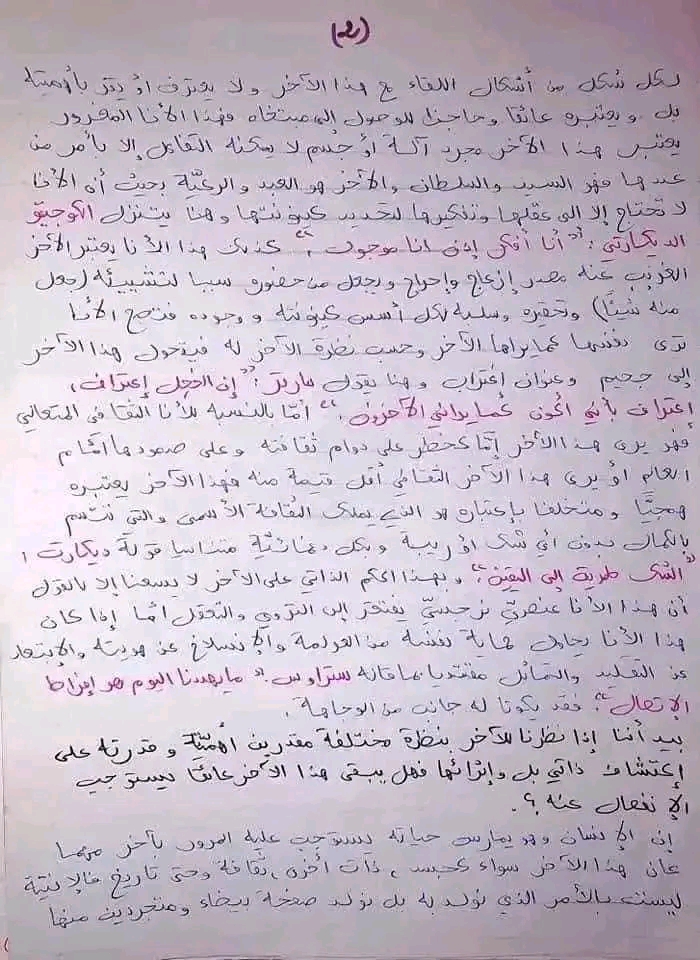 (2)
لكل شكل من أشكال اللقاء مع هذا الآخر ولا يعترف أو يقر بأهميته
بل و يعتبره عائقا وحاجزا للوصول إلى مبتغاه فهذا الأنا المغرور
يعتبر هذا الآخر مجرد آلة أو جسم لا يمكنه التفاعل إلا بأمر من
عندها فهو السيد والسلطان والآخر هو العبد والرعيّة بحيث أن الأنا
لا تحتاج إلا إلى عقلها وتفكيرها لتحديد كينونتها وهنا يتنزل الكوجيتو
الديكارتي: "أنا أفكر إذن أنا موجود"، كذلك هذا الأنا يعتبر الآخر
الغريب عنه مصدر إزعاج وإحراج ويجعل من حضوره سببا لتشييئه (جعل
منه شيئا) وتحقيره وسلبه لكل أسس كينونته و وجوده فتصبح الأنا
ترى نفسها كما يراها الآخر وحسب نظرة الآخر له فيتحول هذا الآخر
إلى جحيم وعنوان إغتراب و هنا يقول سارتر: "إن الخجل إعتراف،
إعتراف بأنني أكون كما يراني الآخرون". أمّا بالنسبة للأنا الثقافي المتعالي
فهو يرى هذا الآخر إمّا كخطر على دوام ثقافته وعلى صمودها أمام
العالم أو يرى هذا الآخر الثقافي أقل قيمة منه فهذا الآخر يعتبره
همجيّا ومتخلفا بإعتباره هو الذي يملك الثقافة الأسمى والتي تتسم
بالكمال بدون أي شك أو ريبة و بكل دغمائيّة متناسيا قولة ديكارت:
"الشك طريق إلى اليقين"، و بهذا الحكم الذاتي على الآخر لا يسعنا إلا بالقول
أن هذا الأنا عنصريّ نرجسيّ يفتقر إلى التروي والتعقل أمّا إذا كان
هذا الأنا يحاول حماية نفسه من العولمة والإنسلاخ عن هويته والإبتعاد
عن التقليد والتماثل مقتديا بما قاله ستراوس: "ما يهددنا اليوم هو إفراط
الإتصال"، فقد يكون له جانب من الوجاهة.
بيد أننا إذا نظرنا للآخر بنظرة مختلفة مقدرين أهميّته و قدرته على
إكتشاف ذاتي بل و إثرائها فهل يبقى هذا الآخر عائقا يستوجب
الإنفصال عنه؟.
إن الإنسان وهو يمارس حياته يستوجب عليه المرور بآخر مهما
كان هذا الآخر سواء كجسد، ذات أخرى، ثقافة وحتى تاريخ فالإنيّة
ليست بالأمر الذي نولد به بل نولد صفحة بيضاء ومتجردين منها